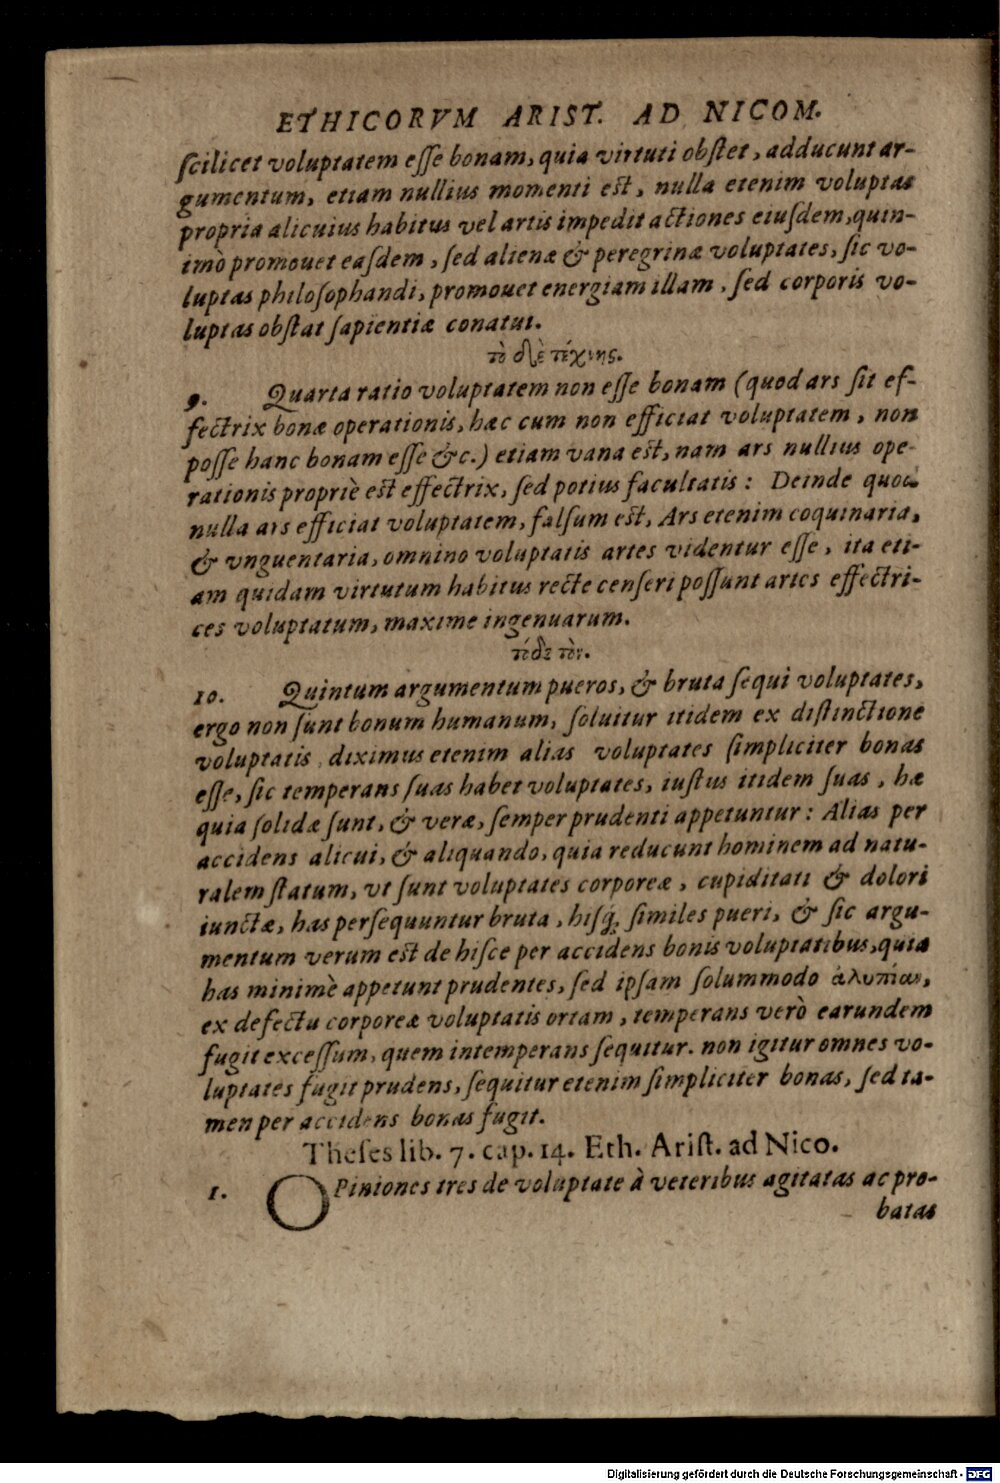 ETHICORVM ARIST. AD NICOM.
ſcilicet voluptatem eſſe bonam, quia virtuti obſtet, adducunt ar-
gumentum, etiam nullius momenti est, nulla etenim voluptas
propria alicuius habitus vel artis impedit actiones eiuſdem, quin-
imò promouet eaſdem, ſed alienæ & peregrinæ voluptates, ſic vo-
luptas philoſophandi, promouet energiam illam, ſed corporis vo-
luptas obſtat ſapientiæ conatui.
τὸ δὲ τέχνης.
9. Quarta ratio voluptatem non eſſe bonam (quod ars ſit ef-
fectrix bonæ operationis, hæc cum non efficiat voluptatem, non
poſſe hanc bonam eſſe &c.) etiam vana est, nam ars nullius ope-
rationis propriè est effectrix, ſed potius facultatis: Deinde quod
nulla ars efficiat voluptatem, falſum est, Ars etenim coquinaria,
& vnguentaria, omnino voluptatis artes videntur eſſe, ita eti-
am quidam virtutum habitus recte cenſeri poſſunt artes effectri-
ces voluptatum, maxime ingenuarum.
10. Quintum argumentum pueros, & bruta ſequi voluptates,
ergo non ſunt bonum humanum, ſoluitur itidem ex distinctione
voluptatis, diximus etenim alias voluptates ſimpliciter bonas
eſſe, ſic temperans ſuas habet voluptates, iustus itidem ſuas, hæ
quia ſolidæ ſunt, & veræ, ſemper prudenti appetuntur: Alias per
accidens alicui, & aliquando, quia reducunt hominem ad natu-
ralem ſtatum, vt ſunt voluptates corporeæ, cupiditati & dolori
iunctæ, has perſequuntur bruta, hiſq; ſimiles pueri, & ſic argu-
mentum verum est de hiſce per accidens bonis voluptatibus, quia
has minimè appetunt prudentes, ſed ipſam ſolummodo ἀλυπίαν,
ex defectu corporeæ voluptatis ortam, temperans verò earundem
fugit exceſſum, quem intemperans ſequitur. non igitur omnes vo-
luptates fugit prudens, ſequitur etenim ſimpliciter bonas, ſed ta-
men per accidens bonas fugit.
Theſes lib. 7. cap. 14. Eth. Ariſt. ad Nico.
1. OPiniones tres de voluptate à veteribus agitatas ac pro-
batas
Digitalisierung gefördert durch die Deutsche Forschungsgemeinschaft - DFG